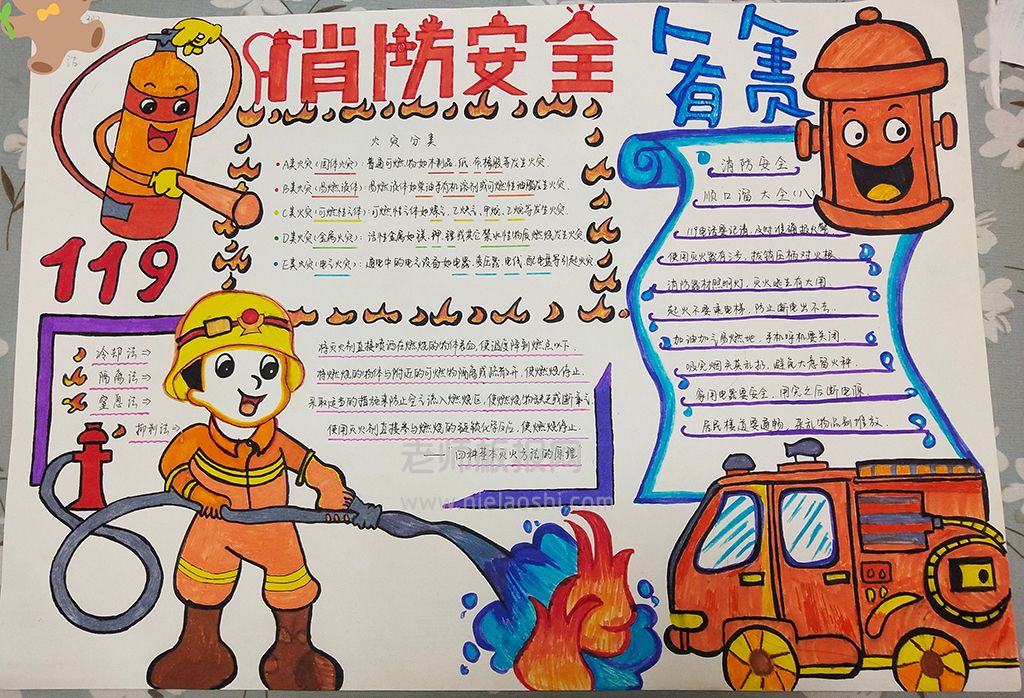 消防安全
人人有责
火灾分类
A类火灾(固体火灾):普通可燃物如木制品、纸、布、橡胶等发生火灾.
B类火灾(易燃液体):易燃液体如柴油等有机溶剂或可燃性油脂发生火灾.
C类火灾(可燃性气体):可燃性气体如煤气、乙炔气、甲烷、乙烷等发生火灾.
D类火灾(金属火灾):活性金属如镁、钾、锂或其它禁水性物质燃烧发生火灾.
E类火灾(电气火灾):通电中的电气设备如电器、变压器、电线、配电盘等引起火灾
119
冷却法⇒ 将灭火剂直接喷洒在燃烧的物体表面,使温度降到燃点以下.
隔离法⇒ 将燃烧的物体与附近的可燃物隔离或疏散开,使燃烧停止.
窒息法⇒ 采取适当的措施来防止空气流入燃烧区,使燃烧物缺乏或断氧
抑制法⇒ 使用灭火剂直接参与燃烧的连锁化学反应,使燃烧停止.
——四种基本灭火方法的原理
消防安全
顺口溜大全(八)
119电话要记清,及时准确报火警
使用灭火器有方,拔销压柄对火根
消防器材照明灯,灭火逃生有大用
起火不要乘电梯,防止断电出不去.
加油加气易燃地,手机呼机要关闭
吸完烟头莫乱扔,避免大意留火种.
家用电器要安全,用完之后断电源
居民楼道要通畅,莫乱物品别堆放.
老师板报网
www.nielaoshi.com
浩